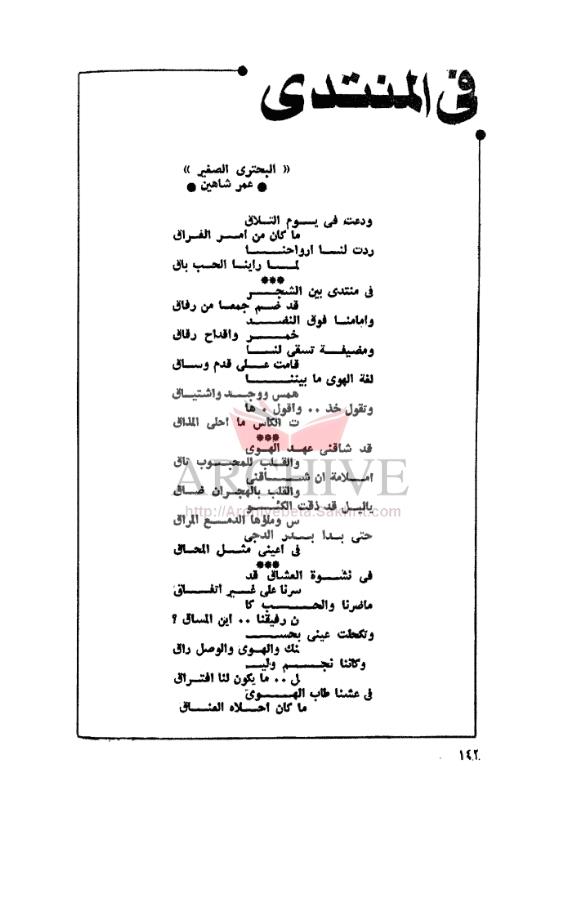 فى المنتدى
« البحترى الصغير »
● عمر شاهين ●
ودعت فى يـــوم التــلاق
ما كان من امــر الفــراق
ردت لنـــا ارواحنــــا
لمـــا راينا الحـب باق
***
فى منتدى بين الشجــر
قد ضــم جمعا من رفاق
وامامنــا فوق النضــد
خمـــر واقداح رقاق
ومضيفــة تسقى لنــا
قامت عـــلى قدم وســاق
لغة الهوى ما بيننــــا
همس ووجــد واشتيــاق
وتقول خذ .. واقول . ها
ت الكأس ما احلى المذاق
***
قد شاقنى عهــد الهــوى
والقلــب للمحبــوب تاق
امــلامة ان شــاقنى
والقلب بالهجــران ضــاق
ياليــل قد ذقت الكئــو
س وملؤها الدمــع المراق
حتى بــدا بــدر الدجى
فى اعينى مثــل المحــاق
***
فى نشــوة العشاق قد
سرنا على غــير اتفــاق
ماضرنا والحـــب كا
ن رفيقنا .. اين المساق ؟
وتكحلت عينى بحســـ
نك والهوى والوصل راق
وكاننا نجــم وليــ
ل .. ما يكون لنا افتــراق
فى عشنا طاب الهــوى
ما كان احــلاه العنــاق
ARCHIVE
http://Archivebeta.Sakhrit.com
١٤٢